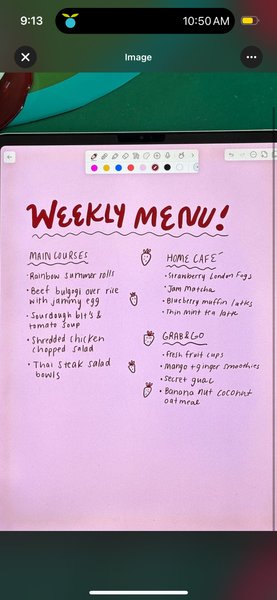 9:13
10:50AM
Image
WEEKLY MENU!
MAIN COURSES
• Rainbow summer rolls
• Beef bulgogi over rice
with jammy egg
• Sourdough blt's &
tomato soup
• Shredded chicken
chopped salad
• Thai steak salad
bowls
HOME CAFE
• Strawberry London Fogs
• Jam Matcha
• Blueberry muffin lattes
• Thin mint tea latte
GRAB&GO
• fresh fruit cups
• Mango + ginger smoothies
• secret guac
• Banana nut coconut
oatmeal